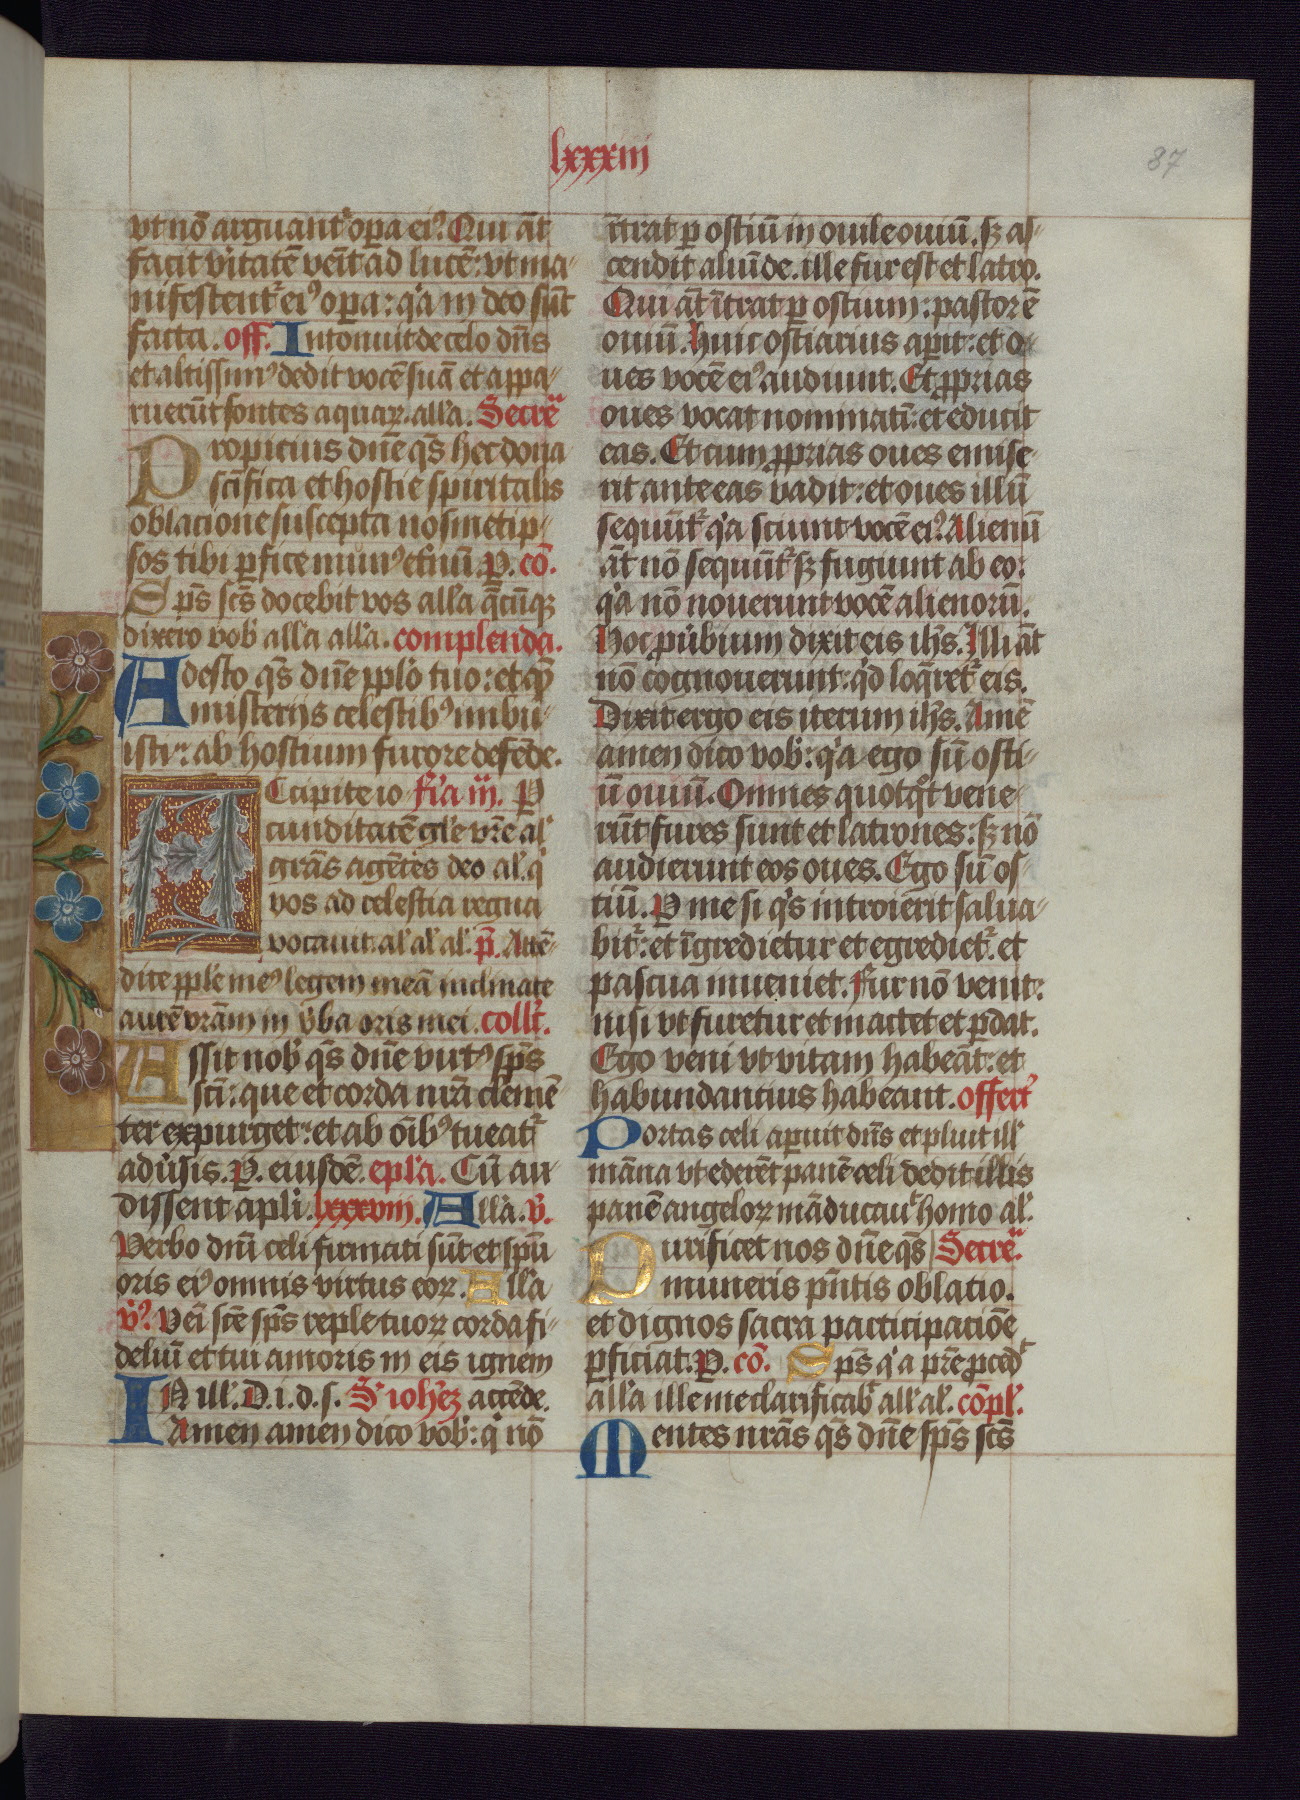 lxxxiii
87
vt nō arguant᷑ oꝑa eiꝰ. Qui āt
facit v̾itatē venit ad lucē: vt ma-
nifestent᷑ eiꝰ oꝑa: q̾a in deo sūt
facta. off. Intonuit de celo dn̄s
et altissimꝰ dedit vocē suā et appa-
ruerūt fontes aquaꝝ. all̾a. Secre᷑
Propicius dn̄e q̄s hec dona
sc̄ifica et hostie spiritalis
oblacione suscepta nosmetip-
sos tibi ꝑfice munꝰ et̾nū. P. cō.
Sps̄ sc̄s docebit vos all̾a q̄cūqꝫ
dixero vob̾ all̾a all̾a. complenda.
Adesto q̄s dn̄e ppl̾o tuo: et q̄
misterijs celestibꝰ imbu-
isti: ab hostium furore defēde.
Accipite io- fr̾a iii. P
cunditatē gl̾e vr̄e al̾
gr̄as agētes deo al̾. q̾
vos ad celestia regna
vocauit al̾ al̾ al̾. p̄. Attē-
dite ppl̾e meꝰ legem meā inclinate
aurē vr̄am in v̾ba oris mei. coll̾r.
Assit nob̾ q̄s dn̄e virtꝰ sps̄
sc̄i: que et corda nr̄a clemē
ter expurget: et ab oībꝰ tueat᷑
adu̾sis. P. eiusdē. epl̾a. Cū au-
dissent apl̾i. lxxxviii. All̾a. v̾.
Verbo dn̄i celi firmati sūt et sp̄u
oris eiꝰ omnis virtus eoꝝ. All̾a
v̾ꝰ. Veni sc̄e sps̄ reple tuoꝝ corda fi-
deliū et tui amoris in eis ignem
IN ill̾. D. i. d. s. S̾ ioh̾eꝫ accēde.
Amen amen dico vob̾: q̾ nō
īt̄rat ꝑ ostiū in ouile ouiū. sꝫ as-
cendit aliūde. ille fur est et latro.
Qui āt īt̄rat ꝑ ostium: pastor ē
ouiū. Huic ostiarius aꝑit: et o-
ues vocē eiꝰ audiunt. Et ꝓprias
oues vocat nominatī: et educit
eas. Et cum ꝓprias oues emise-
rit ante eas vadit: et oues illū
sequūt᷑ q̾a sciunt vocē eiꝰ. Alienū
āt nō sequūt᷑ sꝫ fugiunt ab eo:
q̾a nō nouerunt vocē alienorū.
Hoc ꝓu̾bium dixit eis ih̄s. Illi āt
nō cognouerunt: q̾d loq̄ret᷑ eis.
Dixit ergo eis iterum ih̄s. Amē
amen dico vob̾: q̾a ego sū osti-
ū ouiū. Omnes quotq̾t vene-
rūt fures sunt et latrones: sꝫ nō
audierunt eos oues. Ego sū os-
tiū. P me si q̾s introierit salua-
bit᷑: et īgredietur et egrediet᷑. et
pascua inueniet. Fur nō venit:
nisi vt furetur et mactet et ꝑdat.
Ego veni vt vitam habeāt: et
habundantius habeant. offert᷑
Portas celi aperuit dn̄s et pluit ill̾
māna vt ederēt panē celi dedit illis
panē angeloꝝ māducau᷑ homo al̾.
Purificet nos dn̄e q̄s Secre᷑.
muneris pn̄tis oblatio.
et dignos sacra participatiōe
ꝑficiat. P. cō. Sps̄ q̾ a pr̄e ꝓced᷑
all̾a ille me clarificab᷑ all̾ al̾. cōpl̾.
Mentes nr̄as q̄s dn̄e sps̄ sc̄s